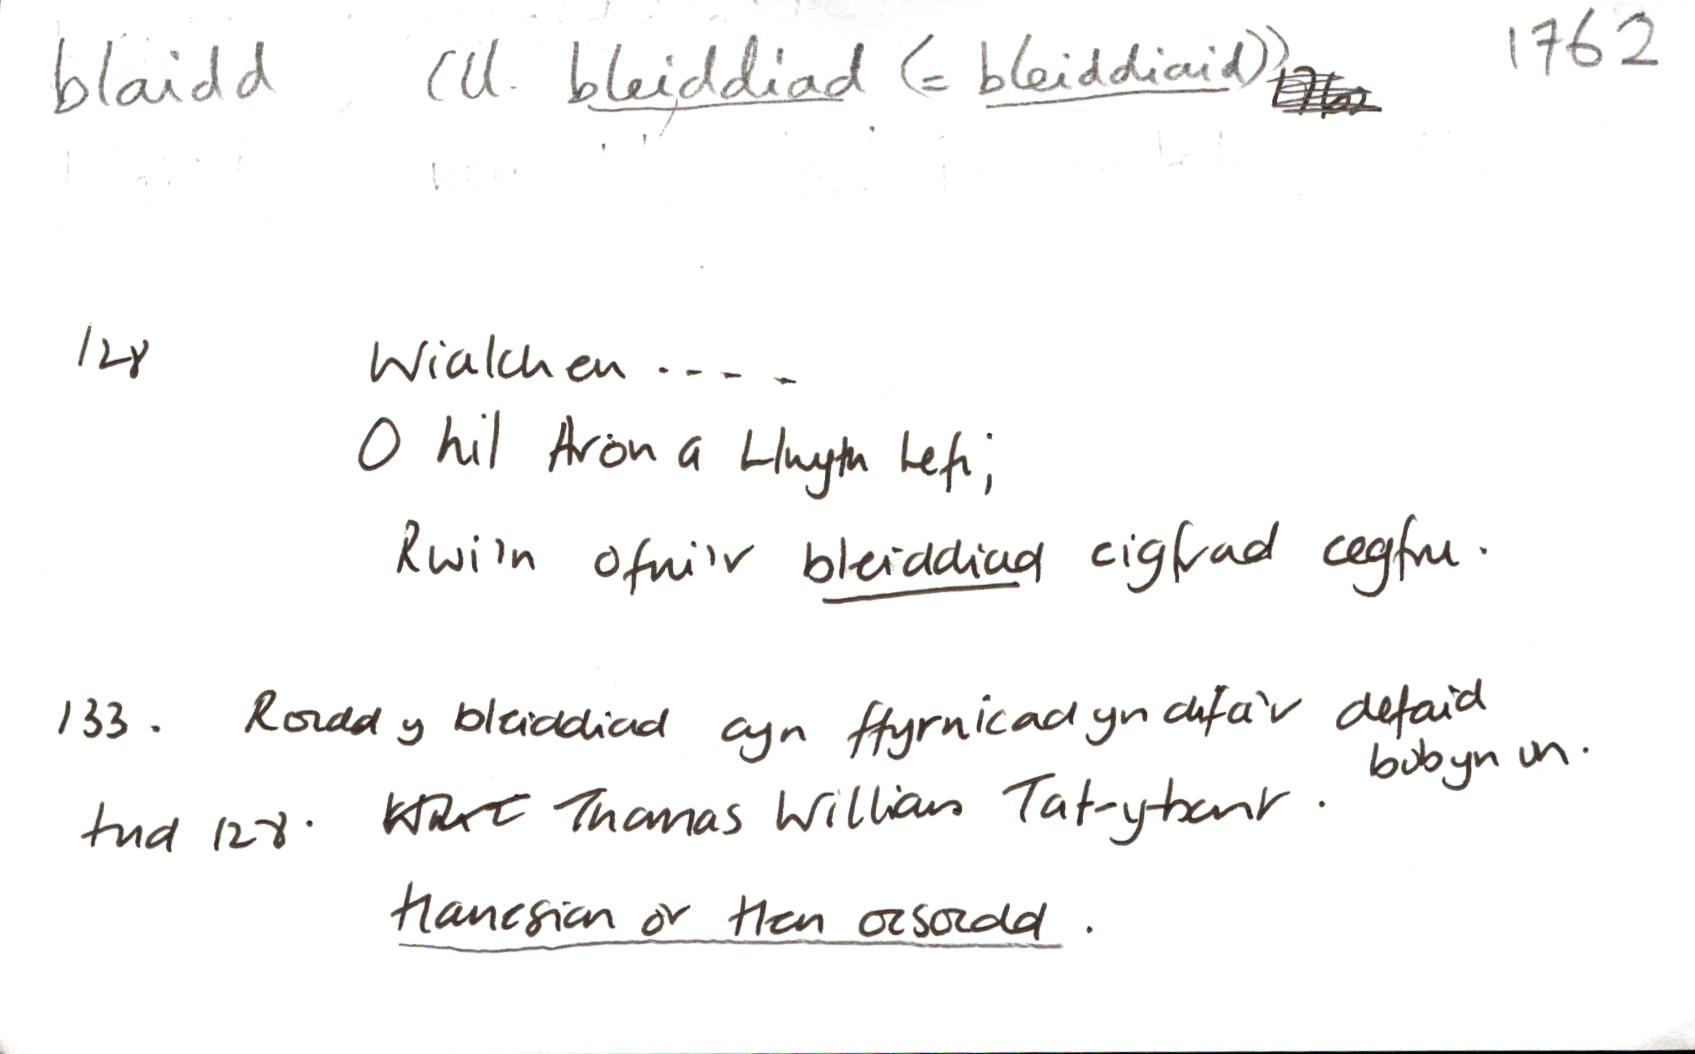 blaidd (ll. bleiddiad (= bleiddiaid)) 1762
128 Wialchen ....
O hil Aron a Llwyth Lefi;
Rwi'n ofni'r bleiddiad cigfrad cegfru.
133. Rordd y bleiddiad cyn ffyrnicad yn difa'r defaid
bob yn un.
tud 128. Thomas William Tat-ybant.
Hanesion or Hen oesordd.